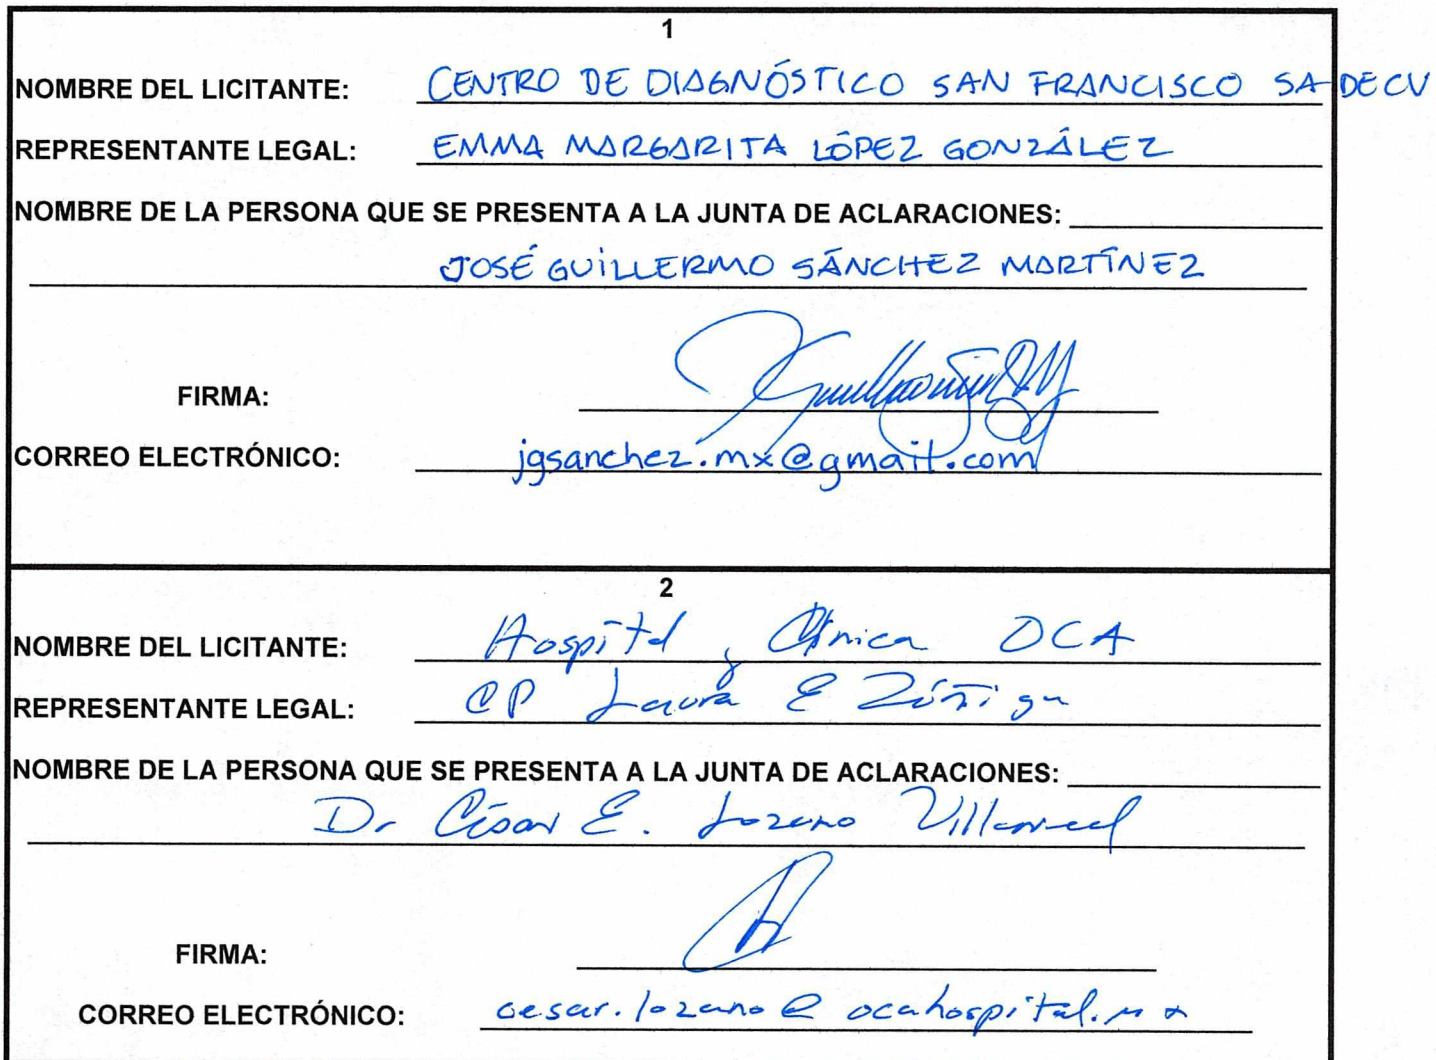 1
NOMBRE DEL LICITANTE: CENTRO DE DIAGNÓSTICO SAN FRANCISCO SA DE CV
REPRESENTANTE LEGAL: EMMA MARGARITA LÓPEZ GONZÁLEZ
NOMBRE DE LA PERSONA QUE SE PRESENTA A LA JUNTA DE ACLARACIONES:
JOSÉ GUILLERMO SÁNCHEZ MARTÍNEZ
FIRMA:
CORREO ELECTRÓNICO: jgsanchez.mx@gmail.com
2
NOMBRE DEL LICITANTE: Hospital y Clínica OCA
REPRESENTANTE LEGAL: CP Laura E Zúñiga
NOMBRE DE LA PERSONA QUE SE PRESENTA A LA JUNTA DE ACLARACIONES:
Dr César E. Lozano Villarreal
FIRMA:
CORREO ELECTRÓNICO: cesar.lozano@ocahospital.mx